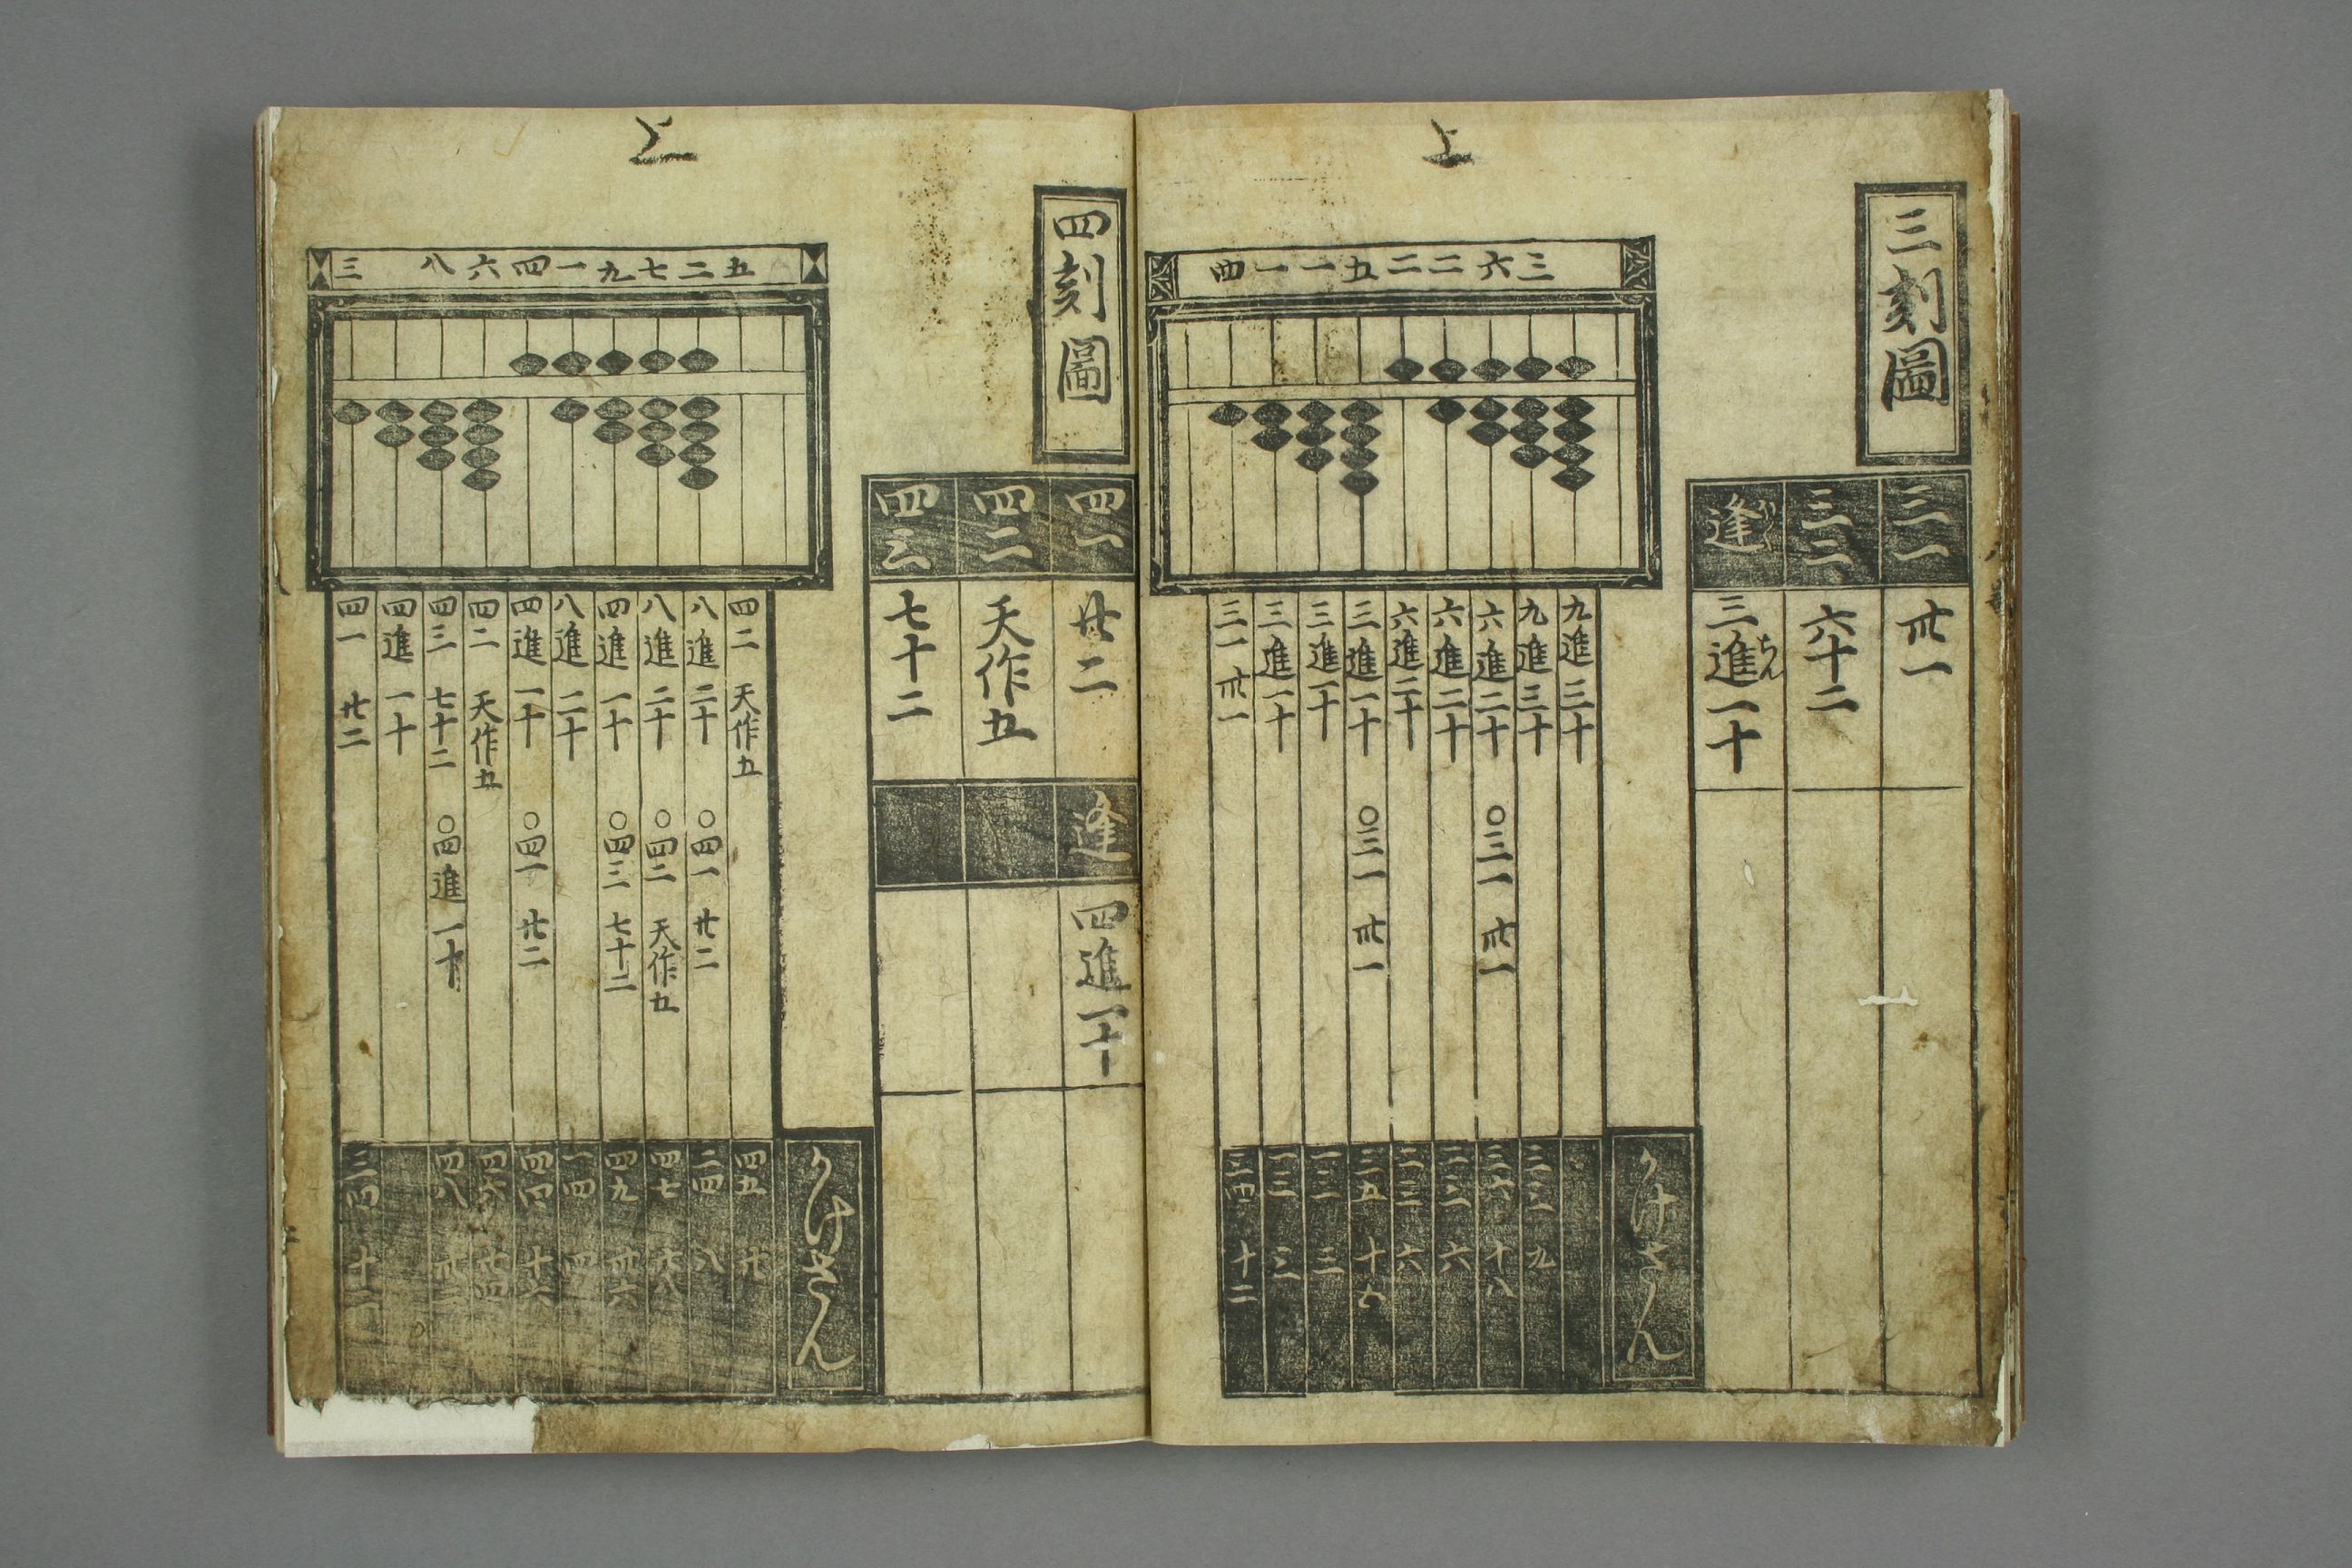 上
三刻圖
三一 卅一
三二 六十二
逢 三進一十
四一一五二二六三
九進三十
九進三十 三三 九
六進二十 〇三一 卅一 三六 十八
六進二十 二三 六
六進二十 二三 六
三進一十 〇三一 卅一 三五 十五
三進一十 一三 三
三進一十 一三 三
三一 卅一 三四 十二
かけさん
上
四刻圖
四一 廿二
四二 天作五
四三 七十二
逢 四進一十
三 八六四一九七二五
かけさん
四二 天作五 四五 廿
八進二十 〇四一 廿二 二四 八
八進二十 〇四二 天作五 四七 廿八
四進一十 〇四三 七十二 四九 卅六
八進二十 一四 四
四進一十 〇四一 廿二 四四 十六
四二 天作五 四六 廿四
四三 七十二 〇四進一十 四八 卅二
四進一十
四一 廿二 三四 十二